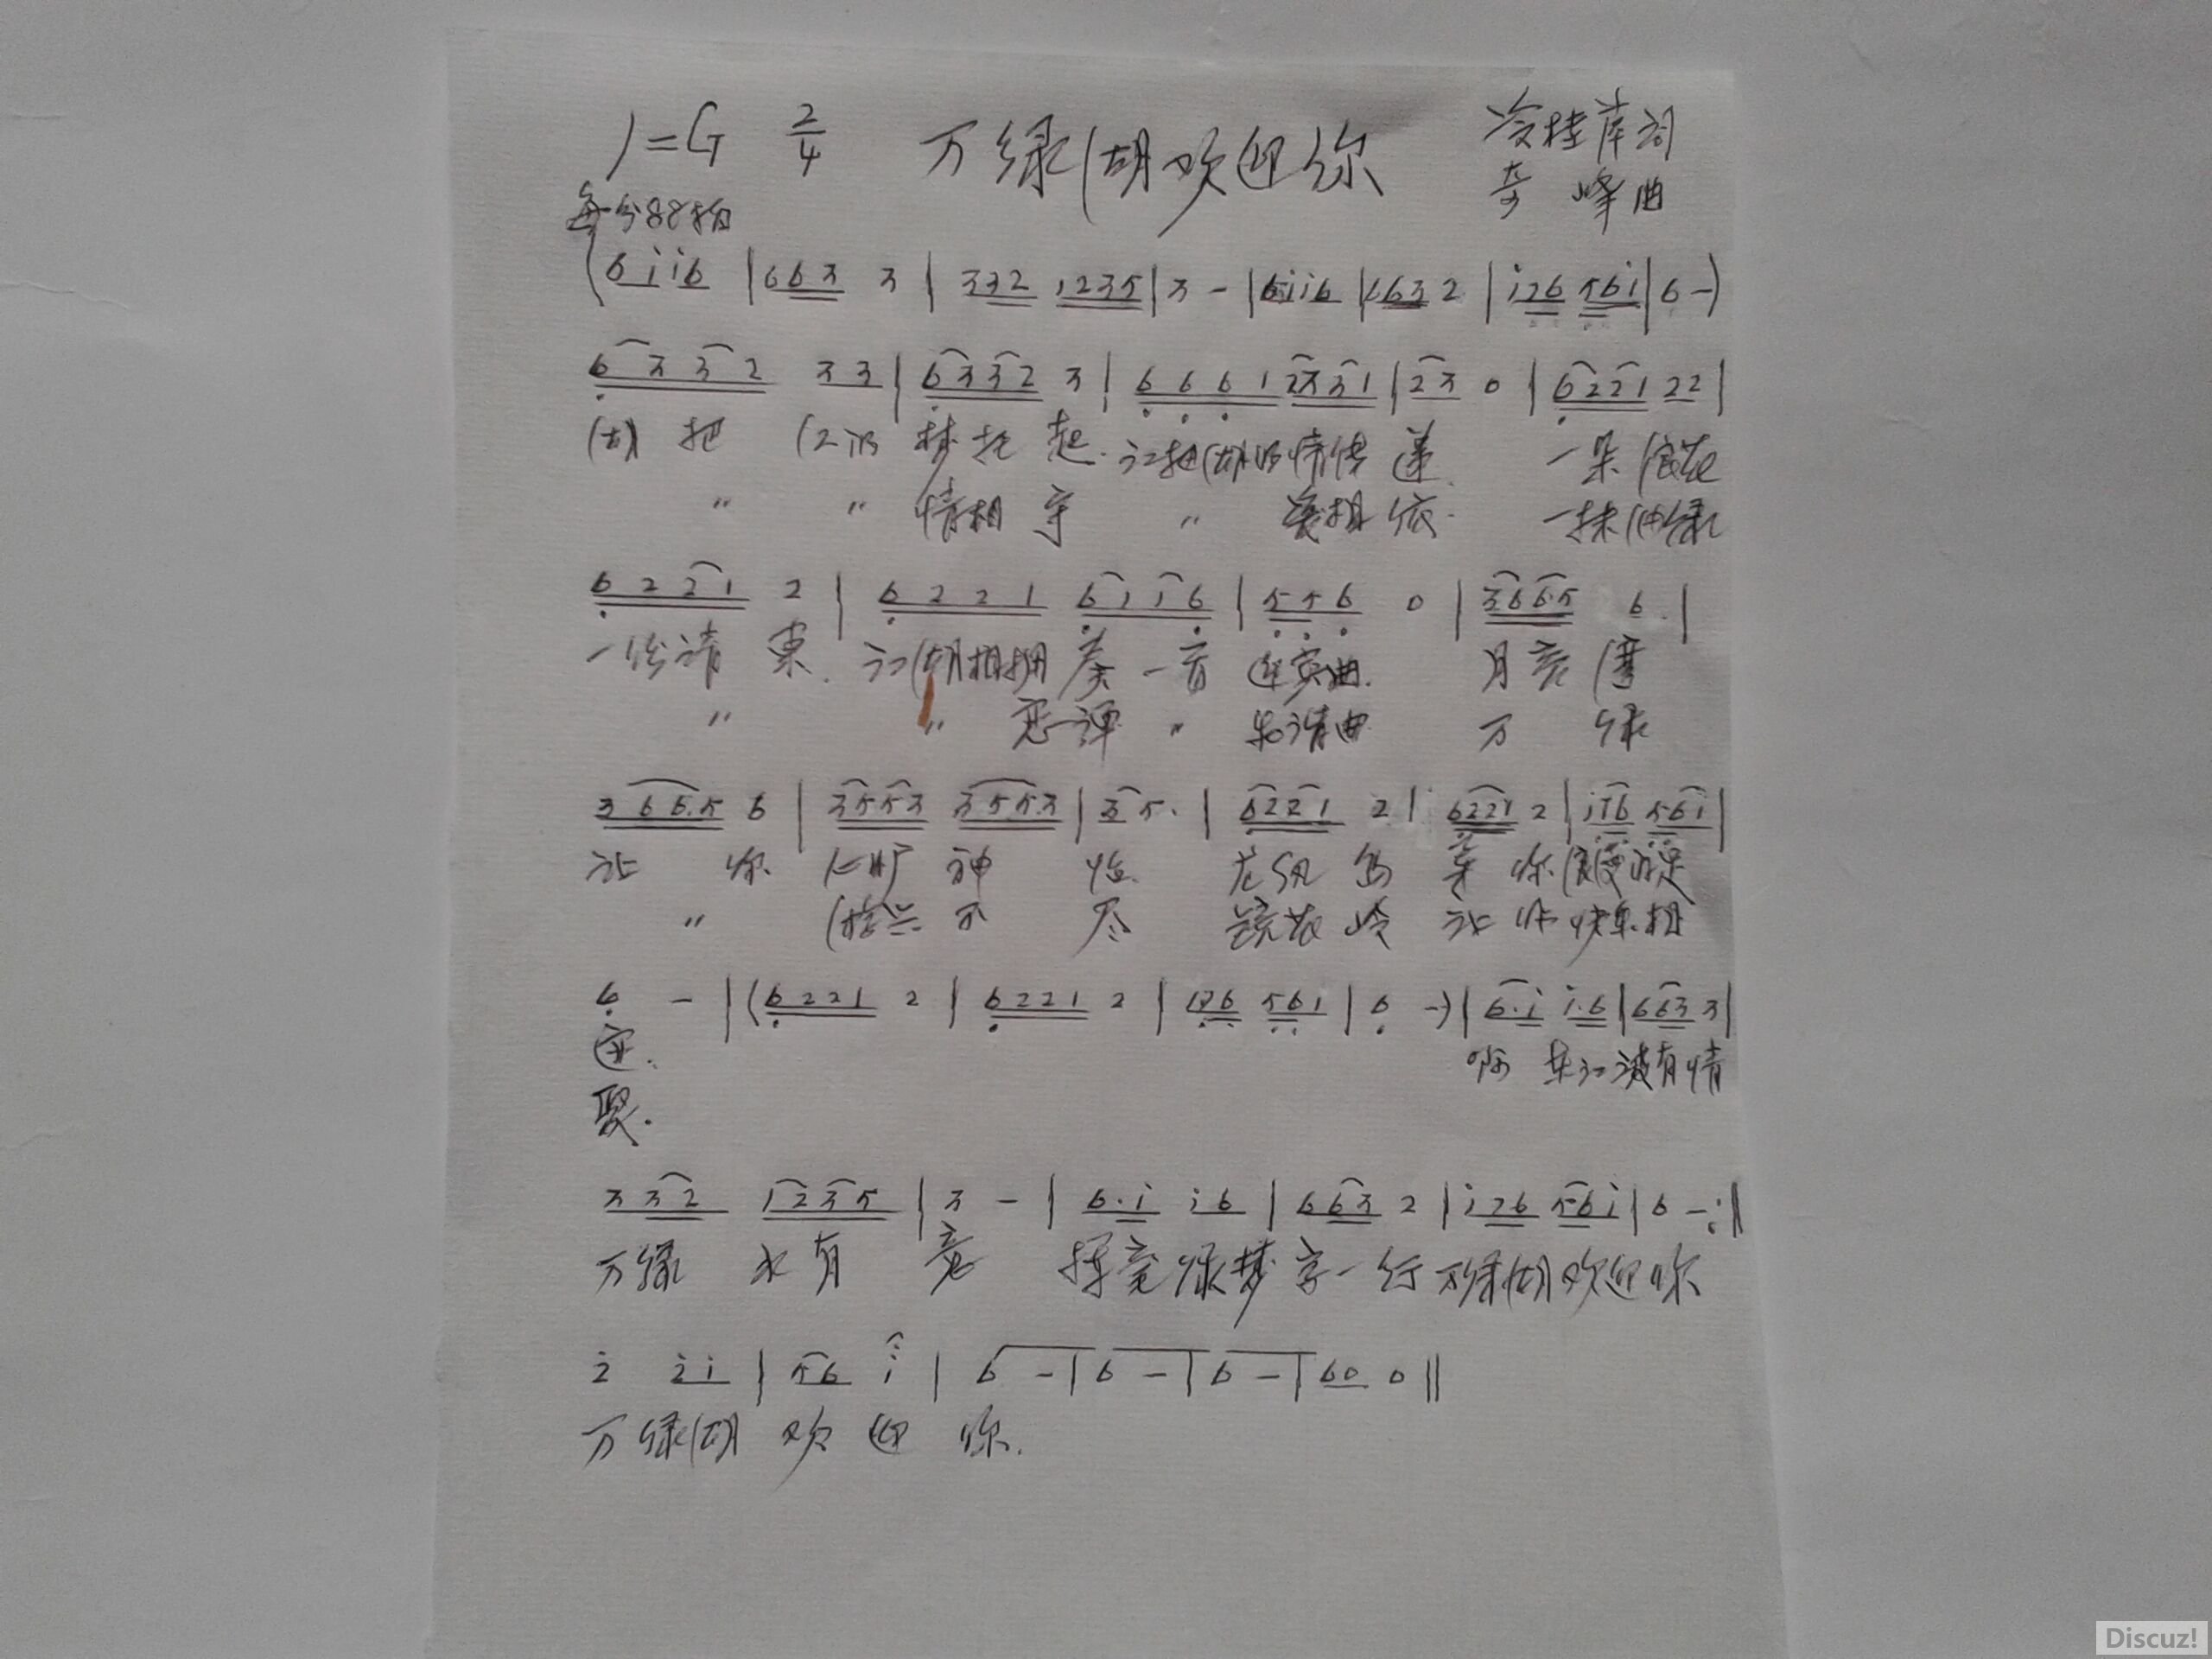 1=G 2/4 万绿湖欢迎你 冷桂库词
每分88拍 奇峰曲
(6 i i6 | 663 3 | 332 1235 | 3 - | 6iib | 663 2 | i76 56i | 6 -)
6332 33 | 6332 3 | 6661 2331 | 23 0 | 6221 22 |
湖把江的梦托起.江把湖的情传递 一朵浪花
〃 〃 情相守 〃 相依. 一抹绿
6221 2 | 6221 6116 | 556 0 | 3665 6. |
一份请柬.江湖相拥奏一首迎宾曲. 月亮湾
〃 〃 恋弹 〃 曲 万绿
3665 6 | 3553 3553 | 35. | 6221 2 | 6221 2 | i76 56i |
让你心旷神怡. 龙凤岛 等你浪漫
〃 不尽 镜花岭 让你快乐相
6 - | (6221 2 | 6221 2 | 176 561 | 6 -) | 6.i i.6 | 663 3 |
定.
啊 东江波有情
聚.
332 1235 | 3 - | 6.i i6 | 663 2 | i76 56i | 6 - :‖
万绿水有意 挥毫绿梦字一行万绿湖欢迎你
2 2i | 56 i | 6 - | 6 - | 6 - | 60 0 ‖
万绿湖欢迎你.
Discuz!